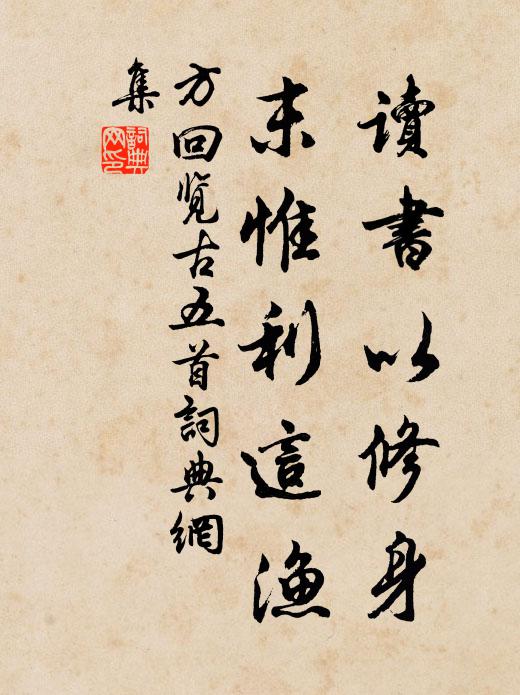 讀書以修身
末惟利這漁
方回覽古五首詞典網
集
詞典
网印